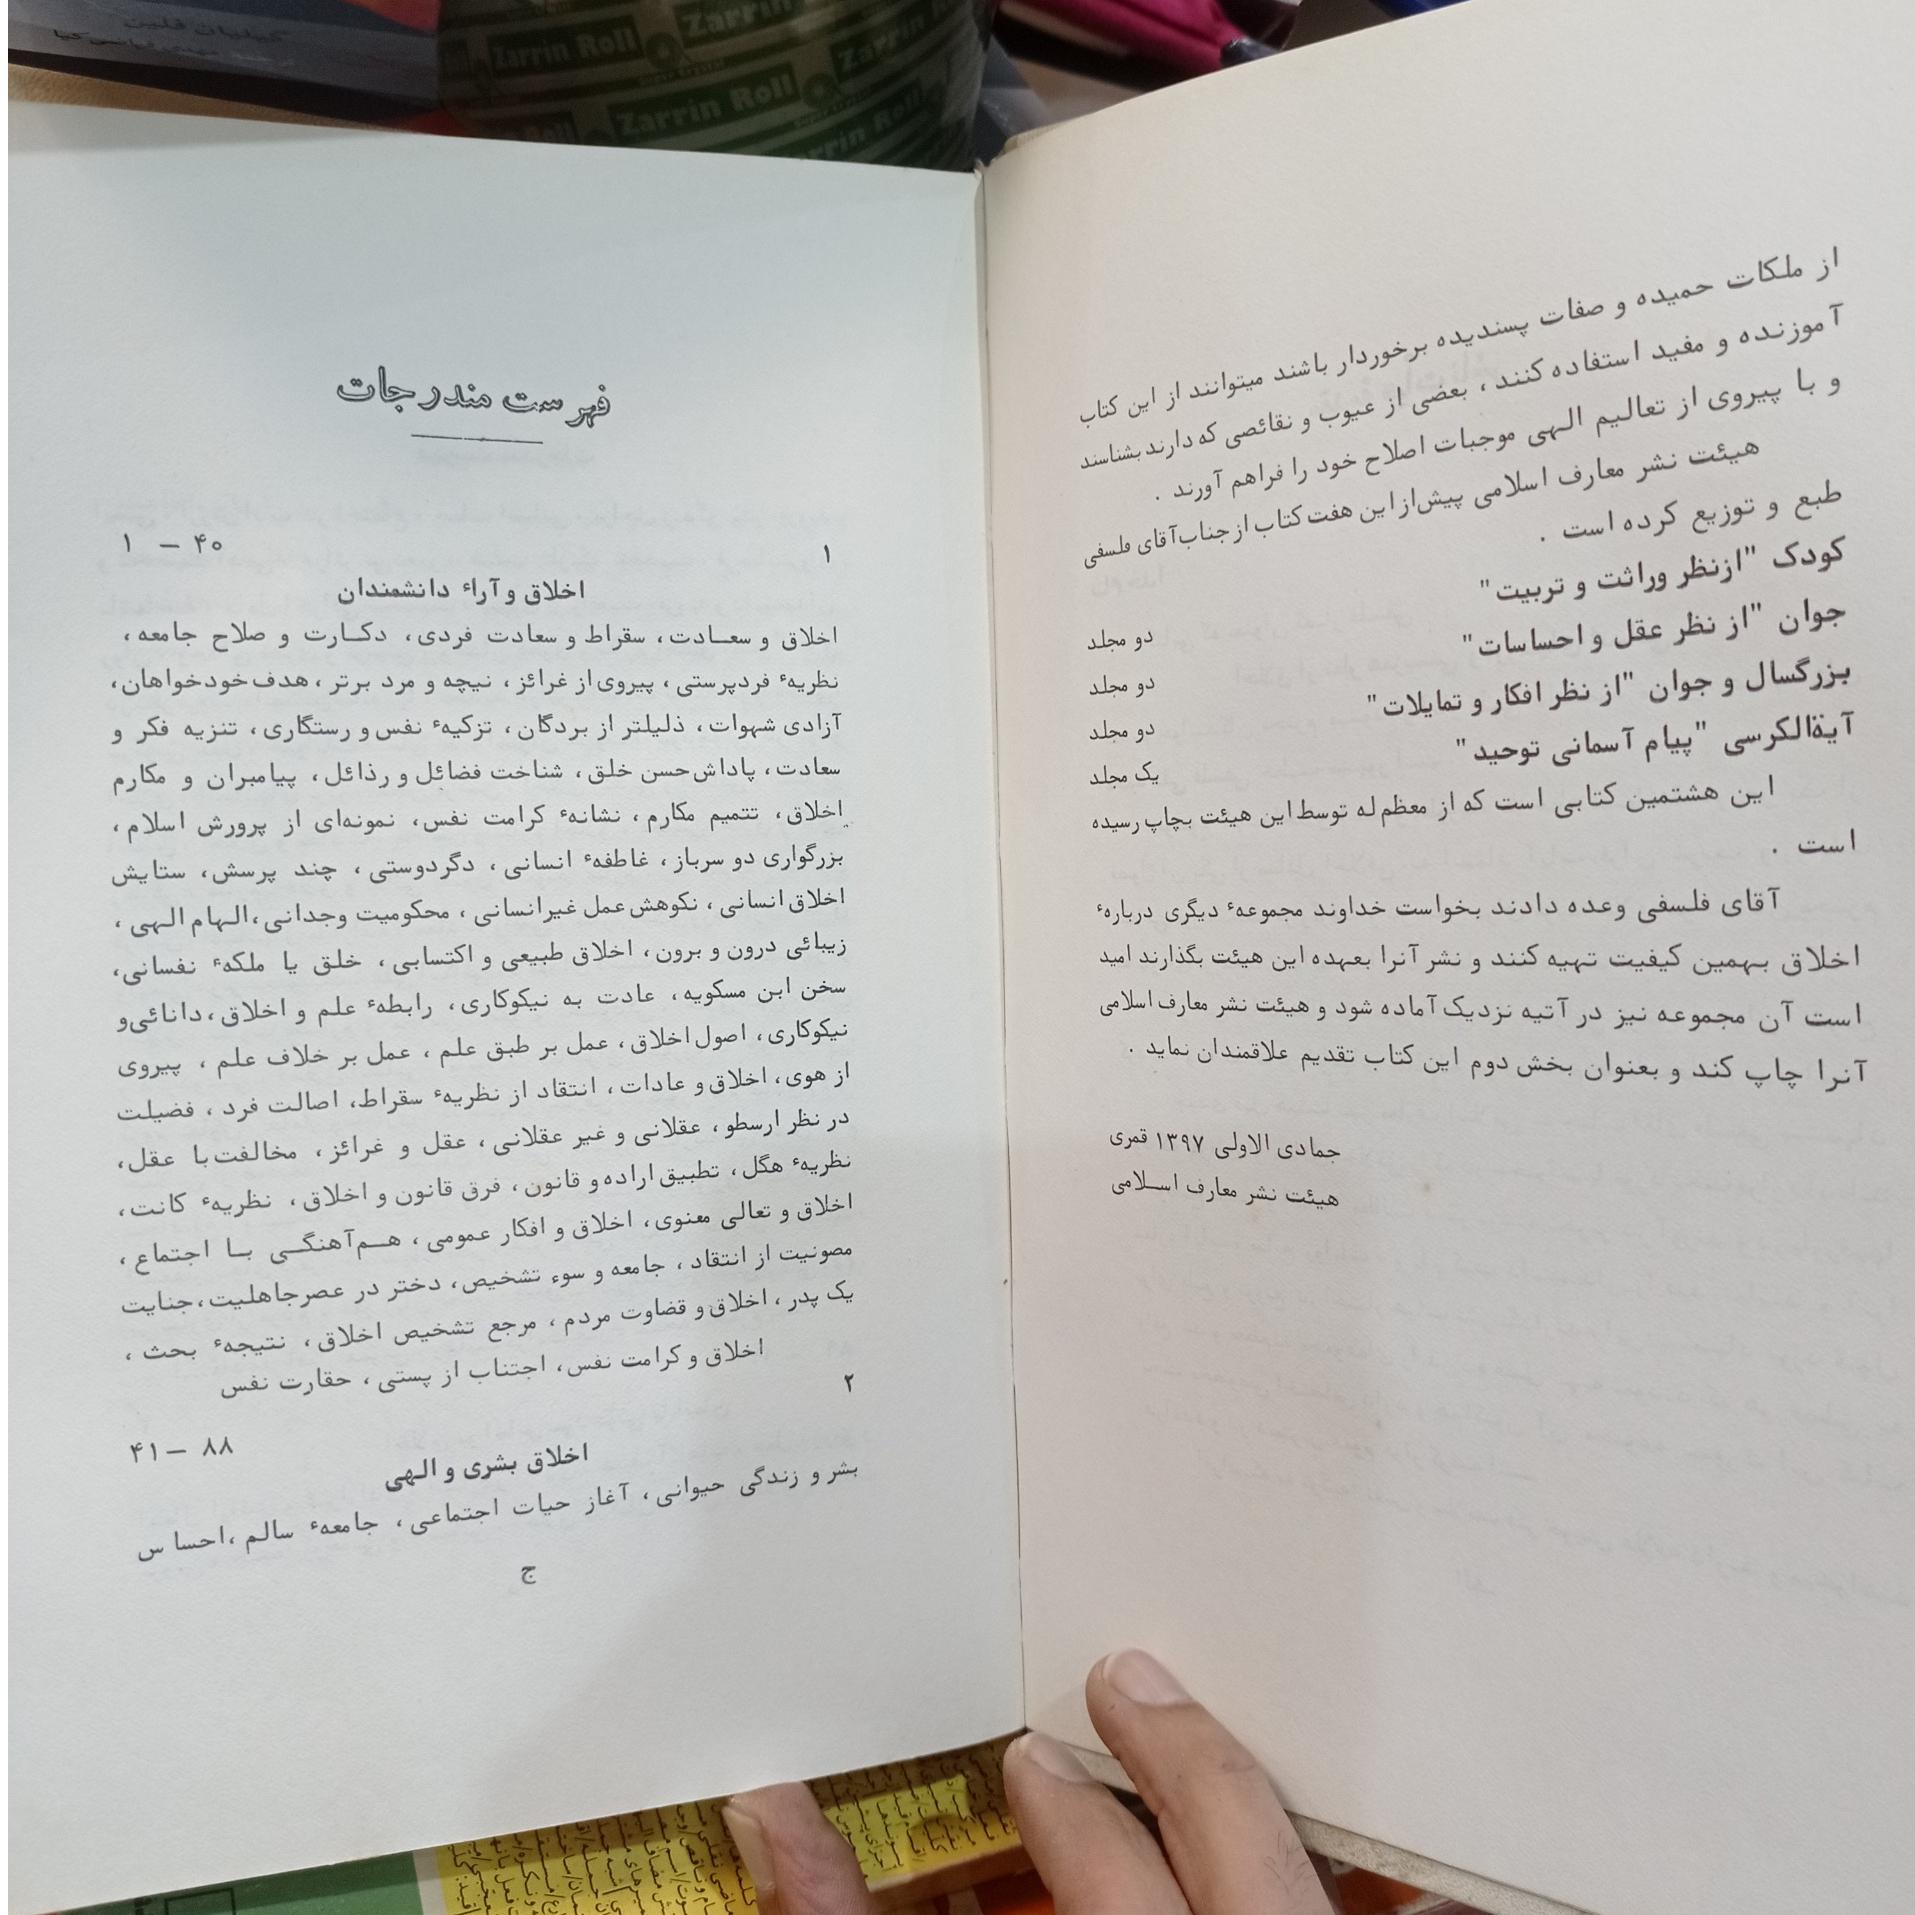 از ملکات حمیده و صفات پسندیده برخوردار باشند میتوانند از این کتاب
آموزنده و مفید استفاده کنند ، بعضی از عیوب و نقائصی که دارند بشناسند
و با پیروی از تعالیم الهی موجبات اصلاح خود را فراهم آورند .
هیئت نشر معارف اسلامی پیش‌از این هفت کتاب از جناب آقای فلسفی
طبع و توزیع کرده است .
کودک "ازنظر وراثت و تربیت" دو مجلد
جوان "از نظر عقل و احساسات" دو مجلد
بزرگسال و جوان "از نظر افکار و تمایلات" دو مجلد
آیةالکرسی "پیام آسمانی توحید" یک مجلد
این هشتمین کتابی است که از معظم‌له توسط این هیئت بچاپ رسیده
است .
آقای فلسفی وعده دادند بخواست خداوند مجموعهٔ دیگری دربارهٔ
اخلاق بهمین کیفیت تهیه کنند و نشر آنرا بعهده این هیئت بگذارند امید
است آن مجموعه نیز در آتیه نزدیک آماده شود و هیئت نشر معارف اسلامی
آنرا چاپ کند و بعنوان بخش دوم این کتاب تقدیم علاقمندان نماید .
جمادی الاولی ۱۳۹۷ قمری
هیئت نشر معارف اسلامی
فهرست مندرجات
۱ ۴۰ – ۱
اخلاق و آراء دانشمندان
اخلاق و سعادت، سقراط و سعادت فردی، دکارت و صلاح جامعه،
نظریهٔ فردپرستی ، پیروی از غرائز ، نیچه و مرد برتر ، هدف خودخواهان،
آزادی شهوات ، ذلیلتر از بردگان، تزکیهٔ نفس و رستگاری، تنزیه فکر و
سعادت، پاداش حسن خلق، شناخت فضائل و رذائل، پیامبران و مکارم
اخلاق، تتمیم مکارم ، نشانهٔ کرامت نفس، نمونه‌ای از پرورش اسلام،
بزرگواری دو سرباز ، غاطفهٔ انسانی ، دگردوستی ، چند پرسش، ستایش
اخلاق انسانی ، نکوهش عمل غیرانسانی ، محکومیت وجدانی ،الهام الهی ،
زیبائی درون و برون، اخلاق طبیعی و اکتسابی ، خلق یا ملکهٔ نفسانی،
سخن ابن مسکویه، عادت به نیکوکاری، رابطهٔ علم و اخلاق ،دانائی و
نیکوکاری، اصول اخلاق، عمل بر طبق علم ، عمل بر خلاف علم ، پیروی
از هوی، اخلاق و عادات ، انتقاد از نظریهٔ سقراط، اصالت فرد ، فضیلت
در نظر ارسطو، عقلانی و غیر عقلانی ، عقل و غرائز ، مخالفت با عقل،
نظریهٔ هگل، تطبیق اراده و قانون، فرق قانون و اخلاق، نظریهٔ کانت،
اخلاق و تعالی معنوی، اخلاق و افکار عمومی ، هم‌آهنگی با اجتماع ،
مصونیت از انتقاد ، جامعه و سوء تشخیص، دختر در عصر جاهلیت ،جنایت
یک پدر ، اخلاق و قضاوت مردم ، مرجع تشخیص اخلاق، نتیجهٔ بحث ،
اخلاق و کرامت نفس، اجتناب از پستی ، حقارت نفس
۲ ۸۸ – ۴۱
اخلاق بشری و الهی
بشر و زندگی حیوانی، آغاز حیات اجتماعی، جامعهٔ سالم ،احساس
ج
Zarrin Roll
Zarrin Roll
Zarrin Roll